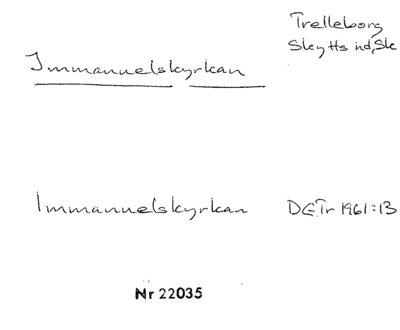 Trelleborg
Skytts hd, Sk
Immanuelskyrkan
Immanuelskyrkan DGTr 1961:13
Nr 22035